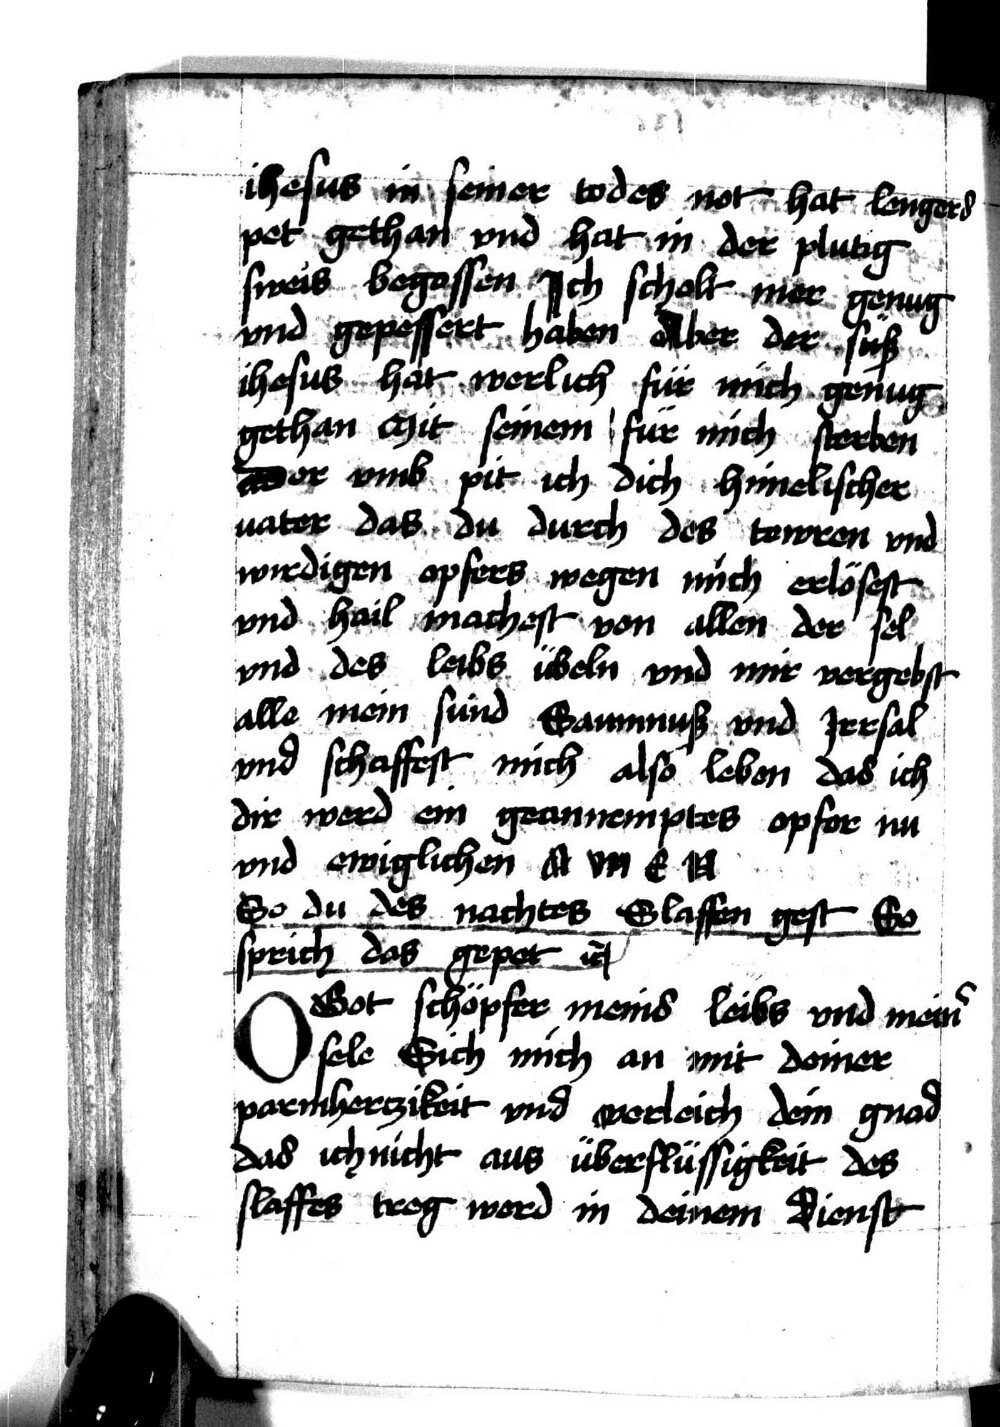 ihesus in seiner todes not hat lengers
pet gethan vnd hat in der plutig
sweis begossen Ich scholt mer genug
vnd gepessert haben Aber der süß
ihesus hat werlich für mich genug
gethan Mit seinem für mich sterben
Der vmb pit ich dich himelischer
uater das du durch des tewren vnd
wirdigen opfers wegen mich erlösest
vnd hail machest von allen der sel
vnd des leibs übeln vnd mir vergebst
alle mein sünd Saumnuß vnd Irrsal
vnd schaffest mich also leben das ich
dir werd ein geannemptes opfer nu
vnd ewiglichen A M E N
So du des nachtes Slaffen gest So
sprich das gepet
O Got schöpfer meins leibs vnd mein̄
sele Sich mich an mit deiner
parmherczikeit vnd verleich dein gnad
das ich nicht aus überflüssigkeit des
slaffes treg werd in deinem Dienst